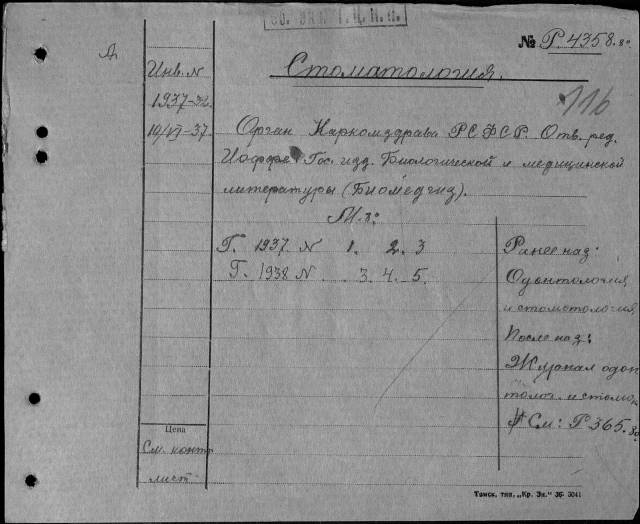 № Р.4358.80
Стоматология.
116
Инв. N
1937-32
10/VI-37
Орган Наркомздрава РСФСР. Отв. ред.
Иоффе. Гос. изд. биологической и медицинской
литературы (Биомедгиз).
М. 8°
Г. 1937. N 1. 2. 3
Г. 1938 N 3. 4. 5.
Ранее наз:
Одонтология
и стоматология
После наз:
Журнал одон
толог. и стомат
См: Р 365.80
Цена
См. контр
лист
Томск, тип. „Кр. Зн." 36- 3041